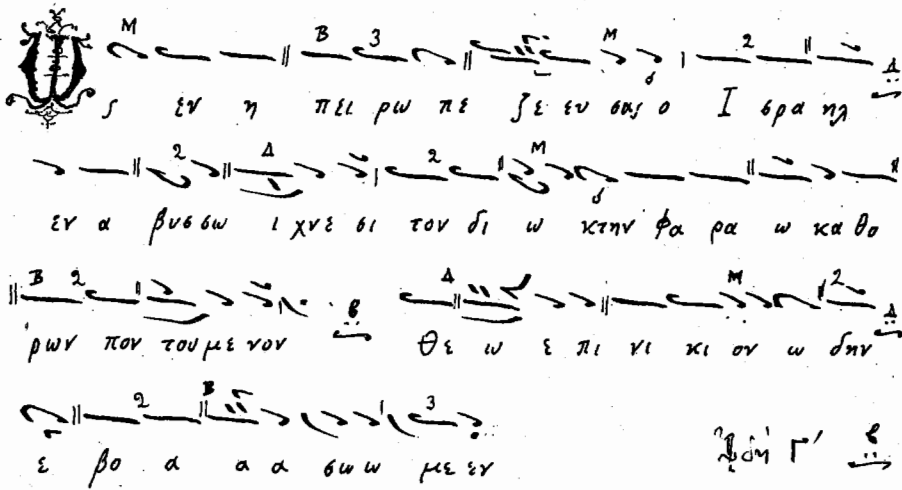 Ως εν η πει ρω πε ζε ευ σας ο Ι σρα ηλ
εν α βυσσω ι χνε σι τον δι ω κτην φα ρα ω κα θο
ρων πον του με νον Θε ω ε πι νι κι ον ω δην
ε βο α α α σω ω με εν
ᾨδή Γ΄